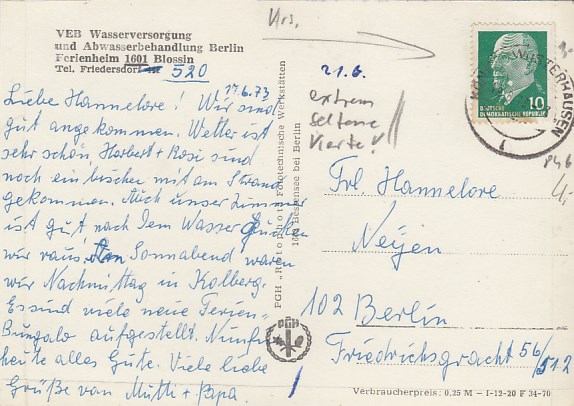 VEB Wasserversorgung
und Abwasserbehandlung Berlin
Ferienheim 1601 Blossin
Tel. Friedersdorf 520
17.6.73
Liebe Hannelore! Wir sind
gut angekommen. Wetter ist
sehr schön, Horbert + Rosi sind
noch ein bischen mit am Strand
gekommen. Auch unser Zimmer
ist gut nach dem Wasser gucken
wir raus. Am Sonnabend waren
wir Nachmittag in Kolberg.
Es sind viele neue Ferien-
Bungalo aufgestellt. Nun für
heute alles Gute. Viele liebe
Grüße von Mutti + Papa.
PGH "Rotophot" Fototechnische Werkstätten
1601 Bestensee bei Berlin
PGH
21.6.
extrem
seltene
Karte!
DEUTSCHE
DEMOKRATISCHE REPUBLIK
10
KÖNIGS WUSTERHAUSEN
P46
4,-
Frl. Hannelore
Neÿen
102 Berlin
Friedrichsgracht 56/
512
Verbraucherpreis: 0,25 M – I-12-20 F 34-70